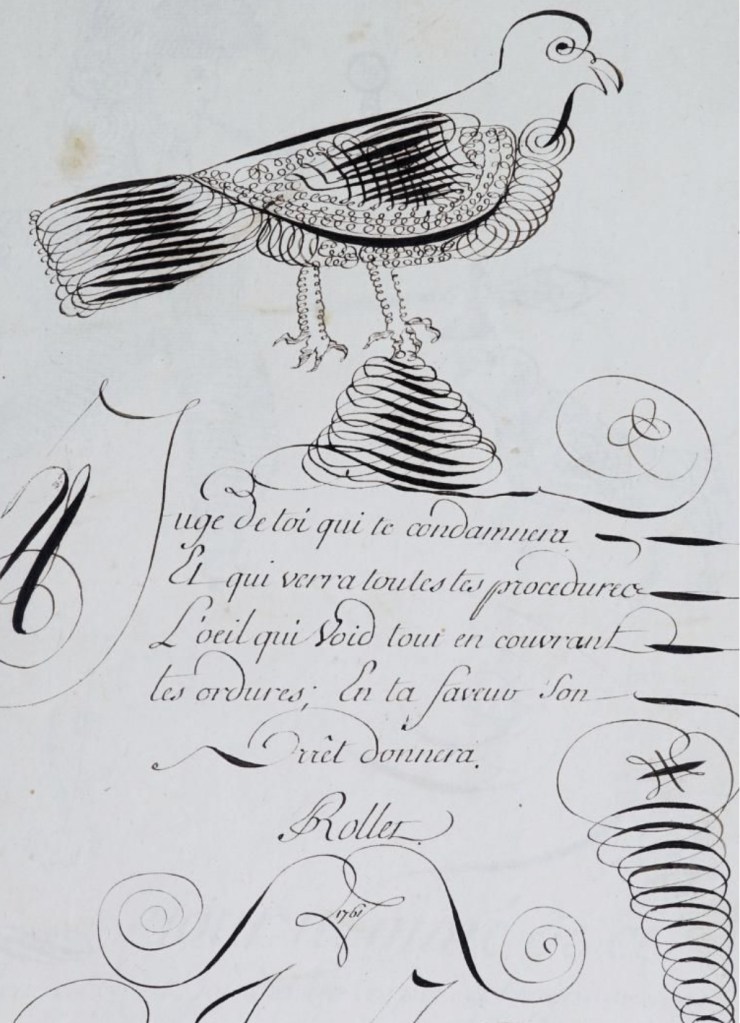 Juge de toi qui te condamnera
Et qui verra toutes tes procedures
L'oeil qui Void tout en couvrant
tes ordures; En ta faveur Son
Arrêt donnera.
Rollet
1761